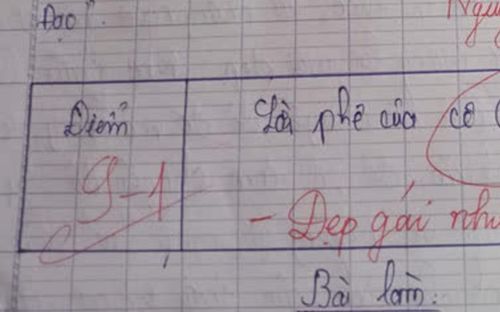 Đạo".
Ngu
Điểm
Lời phê của cô (
9-1
- Đẹp gái nh
Bài làm: